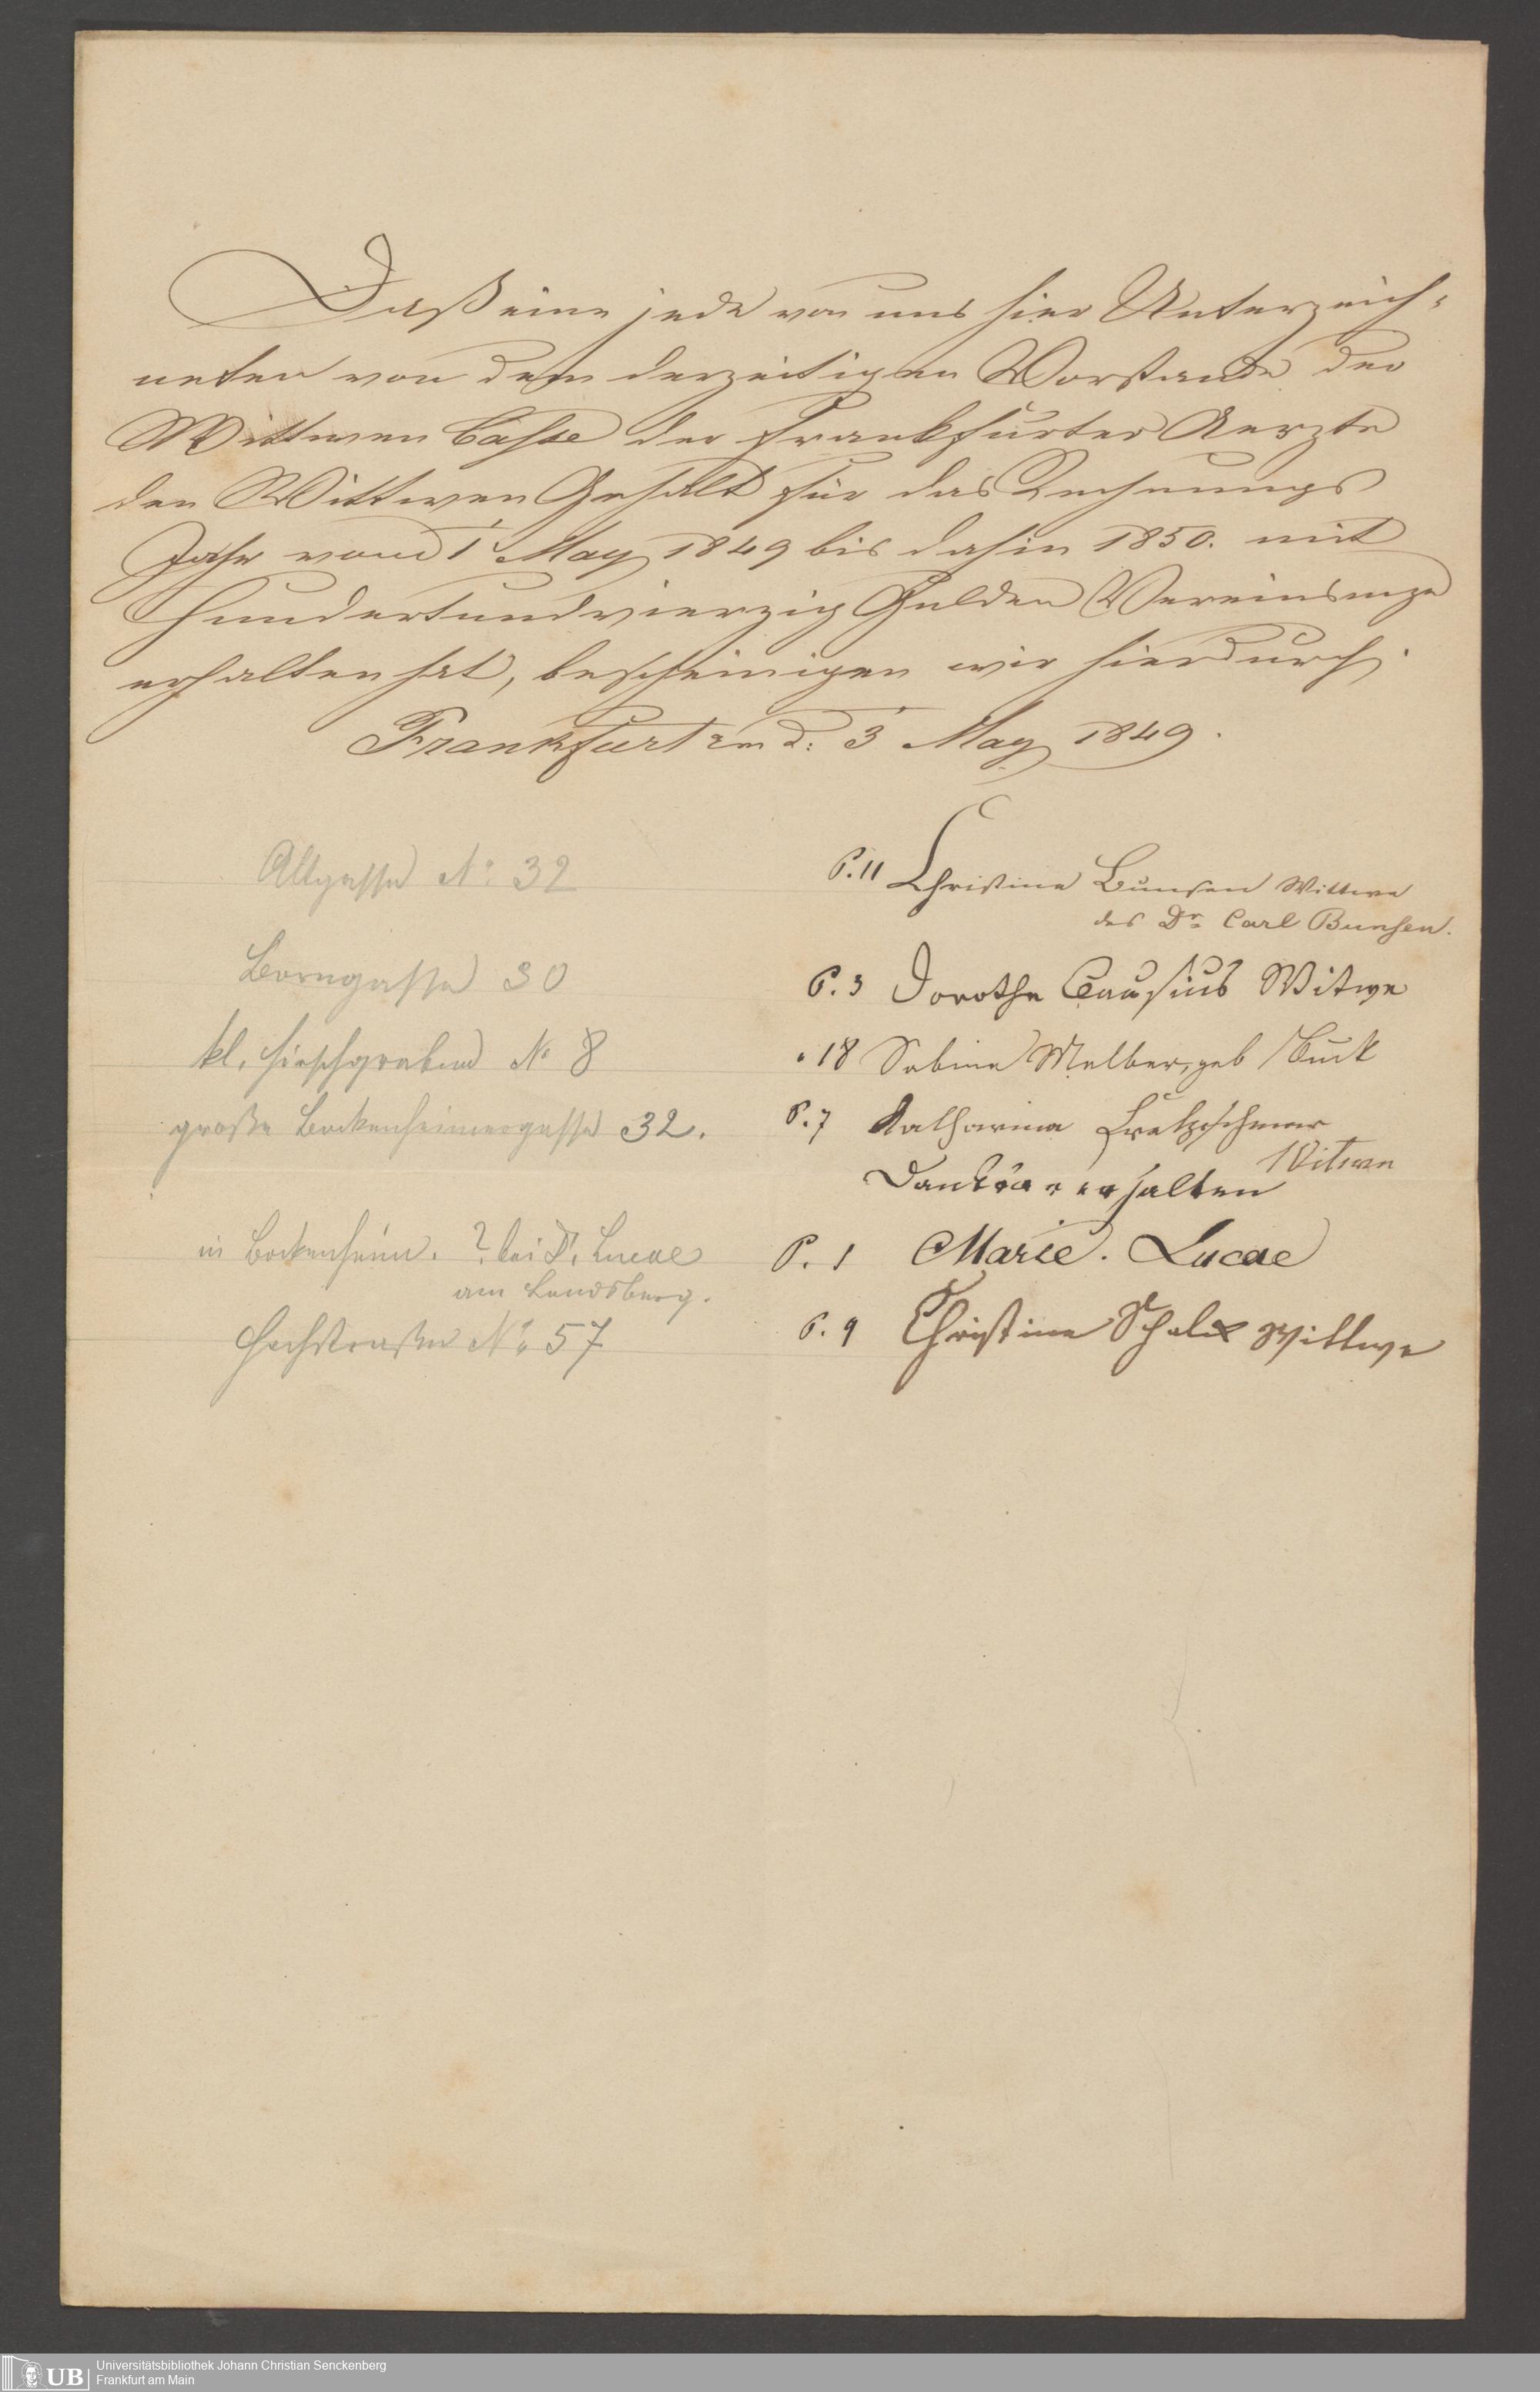 Daß eine jede von uns hier Unterzeich-
neten von dem derzeitigen Vorstande der
Wittwen Casse der Frankfurter Aerzte
den Wittwen Gehalt für das Rechnungs
Jahr vom 1' May 1849 bis dahin 1850. mit
Hundertundvierzig Gulden Vereinsmze
erhalten hat, bescheinigen wir hierdurch.
Frankfurt am d: 3' May 1849.
Altgasse No: 32
P. 11 Christine Bunsen Wittwe
des Dr. Carl Bunsen.
Borngasse 30
P. 3 Dorothe Causius Witwe
kl. Hirschgraben No 8
" 18 Sabine Melber, geb Buck
große Bockenheimergasse 32.
P. 7 Katharina Kretzschmar
Witwe
erhalten
in Bockenheim. ? bei Dr. Lucae
am Landsberg.
P. 1 Marie. Lucae
Hochstraße No 57
P. 9 Christine Schalx Wittwe
Universitätsbibliothek Johann Christian Senckenberg
Frankfurt am Main
UB